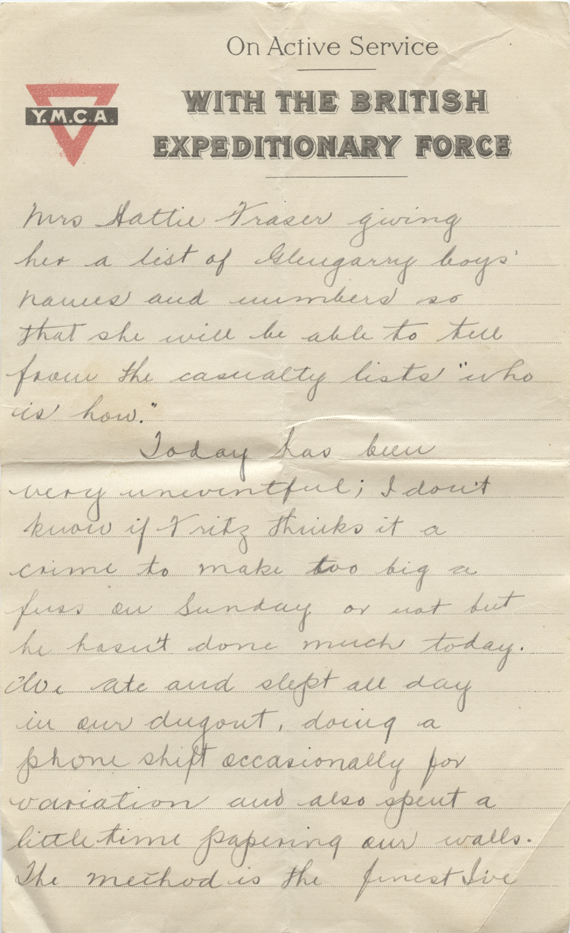 On Active Service
Y.M.C.A.
WITH THE BRITISH
EXPEDITIONARY FORCE
Mrs Hattie Fraser giving
her a list of Glengarry boys'
names and numbers so
that she will be able to tell
from the casualty lists "who
is how."
Today has been
very uneventful; I don't
know if Fritz thinks it a
crime to make too big a
fuss on Sunday or not but
he hasn't done much today.
We ate and slept all day
in our dugout, doing a
phone shift occasionally for
variation and also spent a
little time papering our walls.
The method is the finest I've